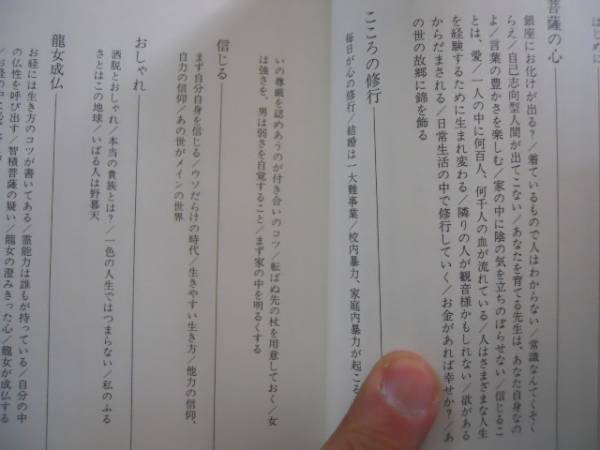 はじめに
菩薩の心
銀座にお化けが出る?/着ているもので人はわからない/常識なんてくそく
らえ/自己志向型人間が出てこない/あなたを育てる先生は、あなた自身なの
よ/言葉の豊かさを楽しむ/家の中に陰の気を立ちのぼらせない/信じるこ
とは、愛/一人の中に何百人、何千人の血が流れている/人はさまざまな人生
を経験するために生まれ変わる/隣りの人が観音様かもしれない/欲がある
からだまされる/日常生活の中で修行していく/お金があれば幸せか?/あ
の世の故郷に錦を飾る
こころの修行
毎日が心の修行/結婚は一大難事業/校内暴力、家庭内暴力が起こる
いの尊厳を認めあうのが付き合いのコツ/転ばぬ先の杖を用意しておく/女
は強さを、男は弱さを自覚すること/まず家の中を明るくする
信じる
まず自分自身を信じる/ウソだらけの時代/生きやすい生き方/他力の信仰、
自力の信仰/あの世がメインの世界
おしゃれ
洒脱とおしゃれ/本当の貴族とは?/一色の人生ではつまらない/私のふる
さとはこの地球/いばる人は野暮天
龍女成仏
お経には生き方のコツが書いてある/霊能力は誰もが持っている/自分の中
の仏性を呼び出す/智積菩薩の疑い/龍女の澄みきった心/龍女が成仏する